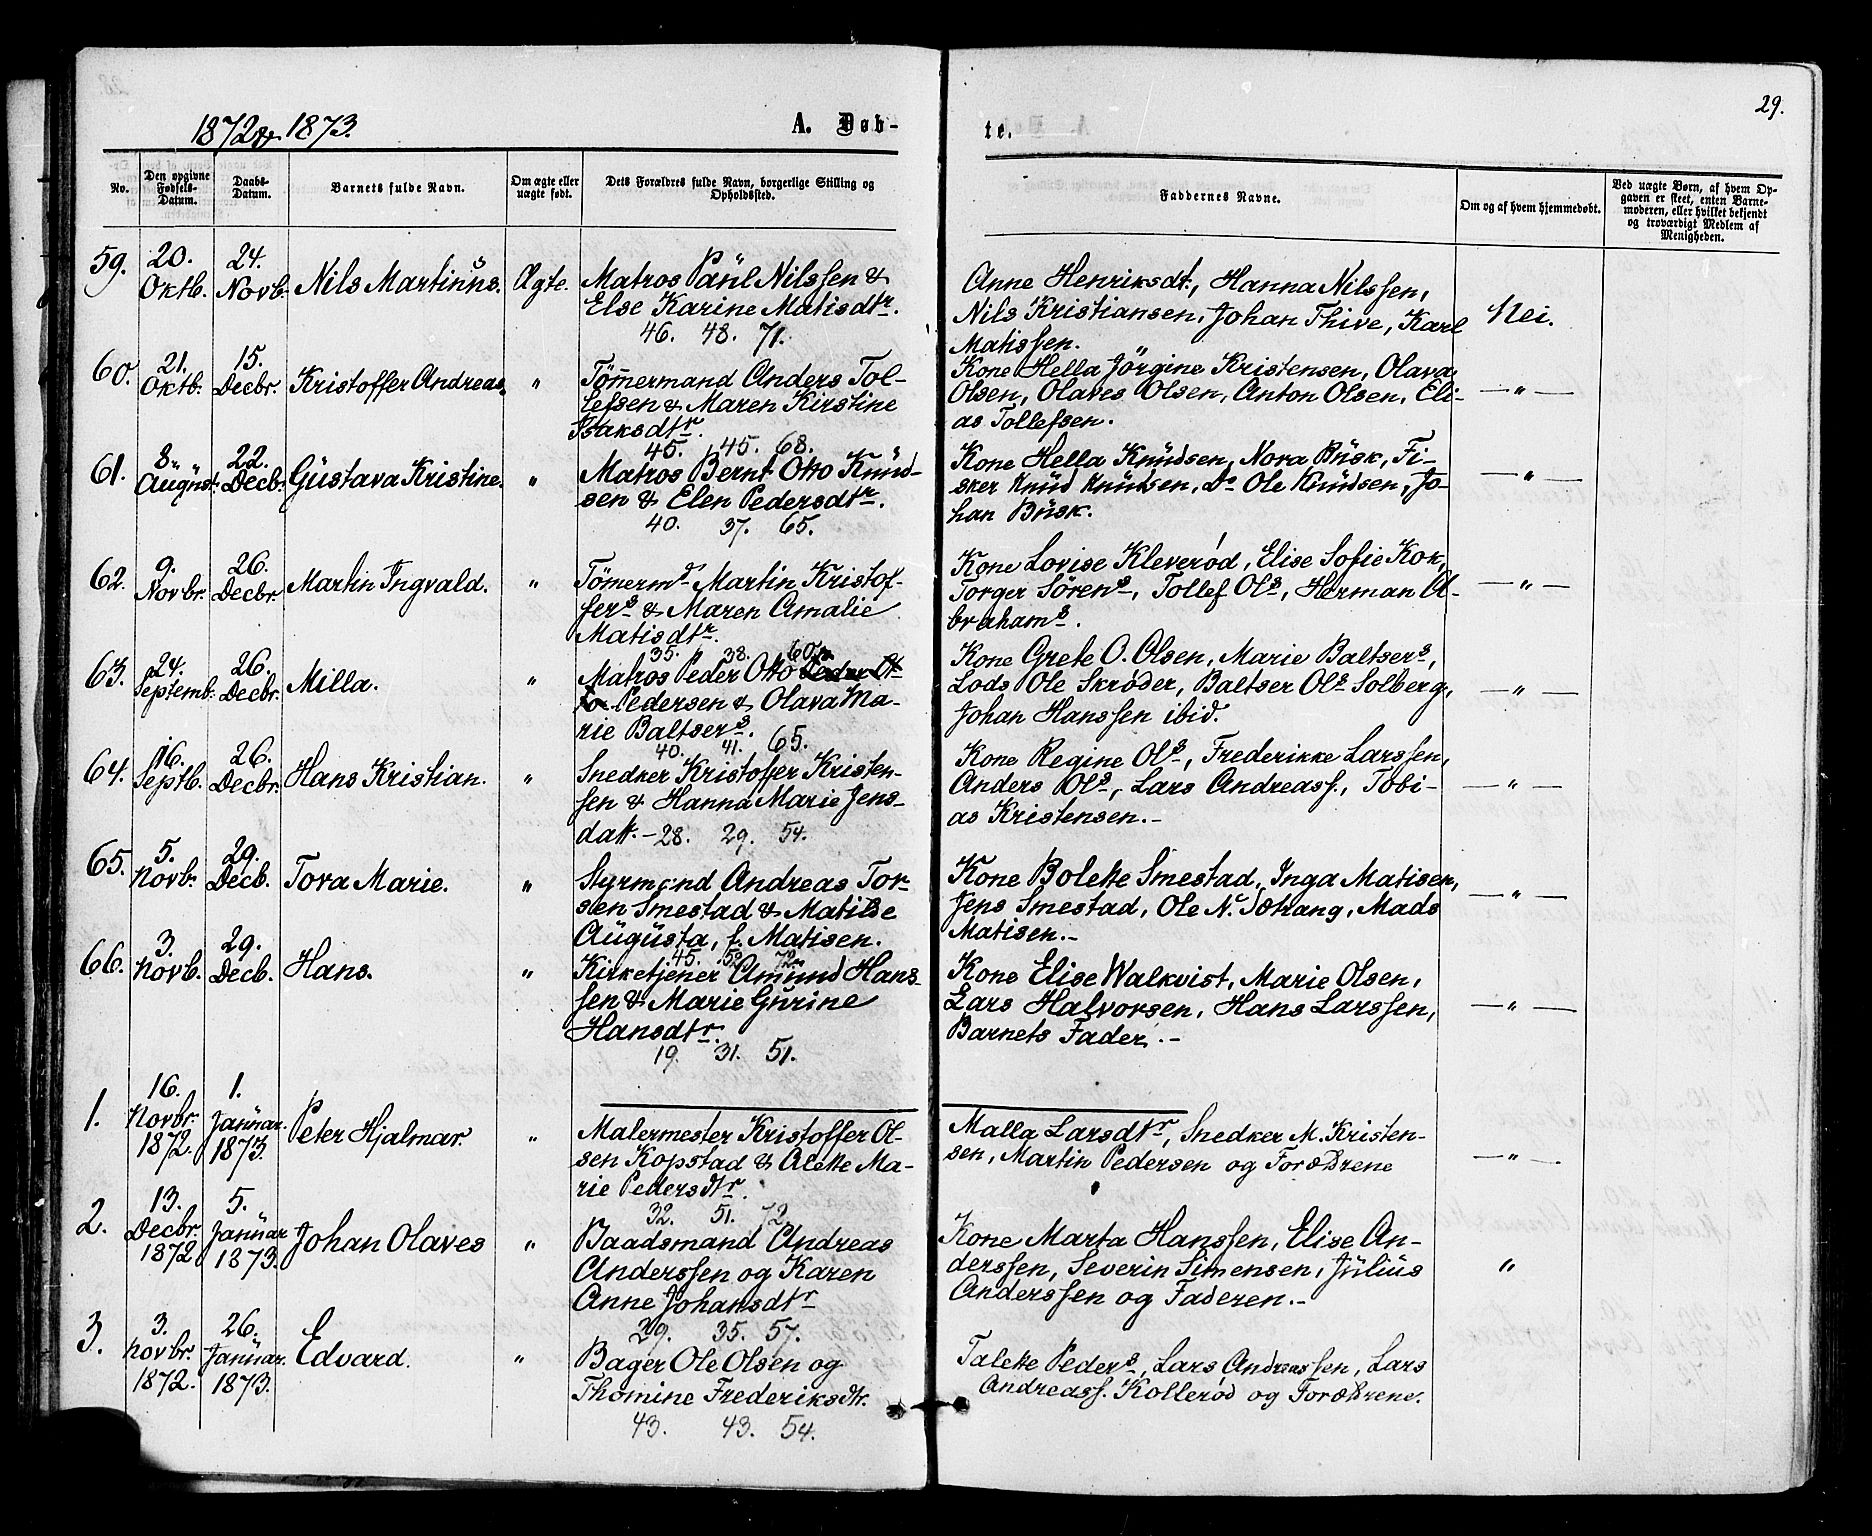 29.
1872 & 1873.
A. Døb-
te.
No.
Den opgivne Fødsels-Datum.
Daabs-Datum.
Barnets fulde Navn.
Om ægte eller uægte født.
Dets Forældres fulde Navn, borgerlige Stilling og Opholdssted.
Faddernes Navne.
Om og af hvem hjemmedøbt.
Ved uægte Børn, af hvem Opgaven er skeet, enten Barnemoderen, eller hvilket bekjendt og troværdigt Medlem af Menigheden.
59.
20. Oktb.
24. Novb.
Nils Martinus.
Ægte.
Matros Paul Nilssen &
Else Karine Matisdtr.
46. 48. 71.
Anne Henriksdt., Hanna Nilssen,
Nils Kristiansen, Johan Thive, Karl
Matissen.
Nei.
60.
21. Oktb.
15. Decbr.
Kristoffer Andreas.
"
Tömmermand Anders Tol-
lefsen & Maren Kirstine
Isaksdtr.
45. 45. 68.
Kone Hella Jörgine Kristensen, Olava
Olsen, Olaves Olsen, Anton Olsen, Eli-
as Tollefsen.
— " —
61.
8. August.
22. Decbr.
Gustava Kristine.
"
Matros Bernt Otto Knud-
sen & Elen Pedersdtr.
40. 37. 65.
Kone Hella Knudsen, Nora Busk, Fi-
sker Knud Knutsen, Do Ole Knudsen, Jo-
han Busk.
— " —
62.
9. Novbr.
26. Decbr.
Martin Ingvald.
"
Tömermd Martin Kristof-
fers & Maren Amalie
Matisdtr.
35. 38. 60.
Kone Lovise Kleverød, Elise Sofie Kok,
Torger Sörens, Tollef Ols, Herman A-
brahams.
— " —
63.
24. Septemb.
26. Decbr.
Milla.
"
Matros Peder Otto Peder Ot
to Pedersen & Olava Ma-
rie Baltsers.
40. 41. 65.
Kone Grete O. Olsen, Marie Baltsers,
Lods Ole Skrøder, Baltser Ols Solberg,
Johan Hanssen ibid.
— " —
64.
16. Septb.
26. Decbr.
Hans Kristian.
"
Snedker Kristoffer Kristen-
sen & Hanna Marie Jens-
datt. — 28. 29. 54.
Kone Regine Ols, Frederikke Larssen,
Anders Ols, Lars Andreass., Tobi-
as Kristensen. -
— " —
65.
5. Novb.
29. Decb.
Tora Marie.
"
Styrmand Andreas Tor-
sen Smestad & Matilde
Augusta, f. Matisen.
45. 52. 72.
Kone Bolette Smestad, Inga Matisen,
Jens Smestad, Ole N. Sætrang, Mads
Matisen. -
— " —
66.
3. Novb.
29. Decb.
Hans.
"
Kirketjener Amund Hans-
sen & Marie Gurine
Hansdtr.
19. 31. 51.
Kone Elise Walkvist, Marie Olsen,
Lars Halvorsen, Hans Larssen,
Barnets Fader. -
— " —
1.
16. Novbr. 1872.
1. Januar. 1873.
Peter Hjalmar.
"
Malermester Kristoffer Ol-
sen Kopstad & Alette Ma-
rie Pedersdtr.
32. 51. 72.
Malla Larsdtr, Snedker M. Kristen-
sen, Martin Pedersen og Forældrene
— " —
2.
13. Decbr. 1872
5. Januar 1873.
Johan Olaves
"
Baadsmand Andreas
Anderssen og Karen
Anne Johansdtr
29. 35. 57.
Kone Marta Hanssen, Elise An-
derssen, Severin Simensen, Julius
Anderssen og Faderen. -
"
3.
3. Novbr. 1872.
26. Januar. 1873.
Edvard.
"
Bager Ole Olsen og
Thomine Frederiksdtr.
43. 43. 54.
Talette Peders, Lars Andreassen, Lars
Andreass. Kollerød og Forældrene.